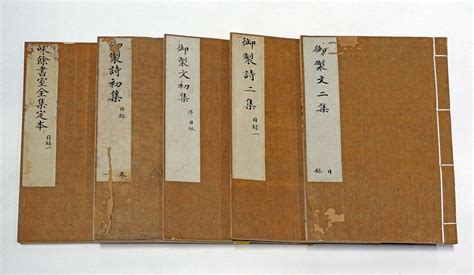 御製文二集
目
錄
御製詩二集
目錄一
御製文初集
序目錄
御製詩初集
目錄
卷
味餘書室全集定本
目錄一